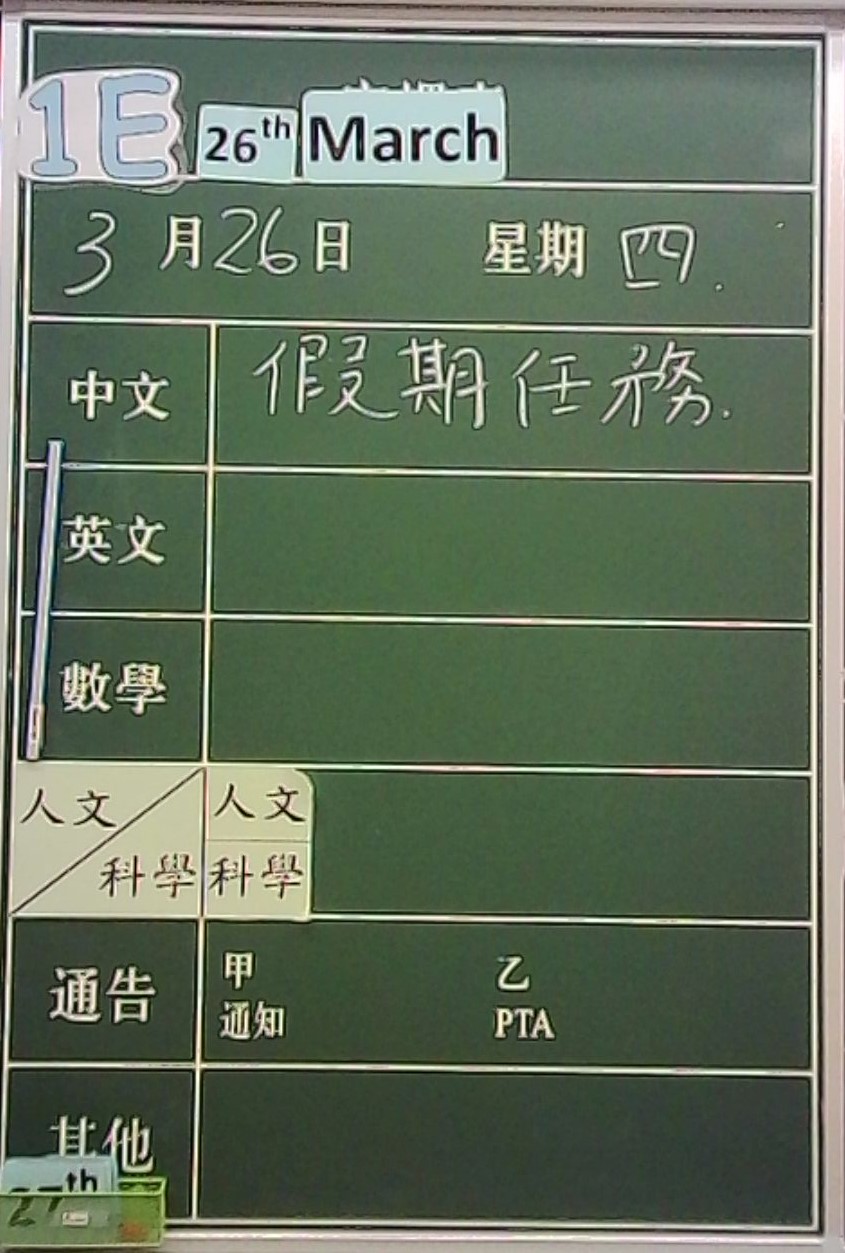 1E 26th March
3月26日 星期四.
中文 假期任務.
英文
數學
人文 人文
科學 科學
通告 甲 乙
通知 PTA
其他
27th